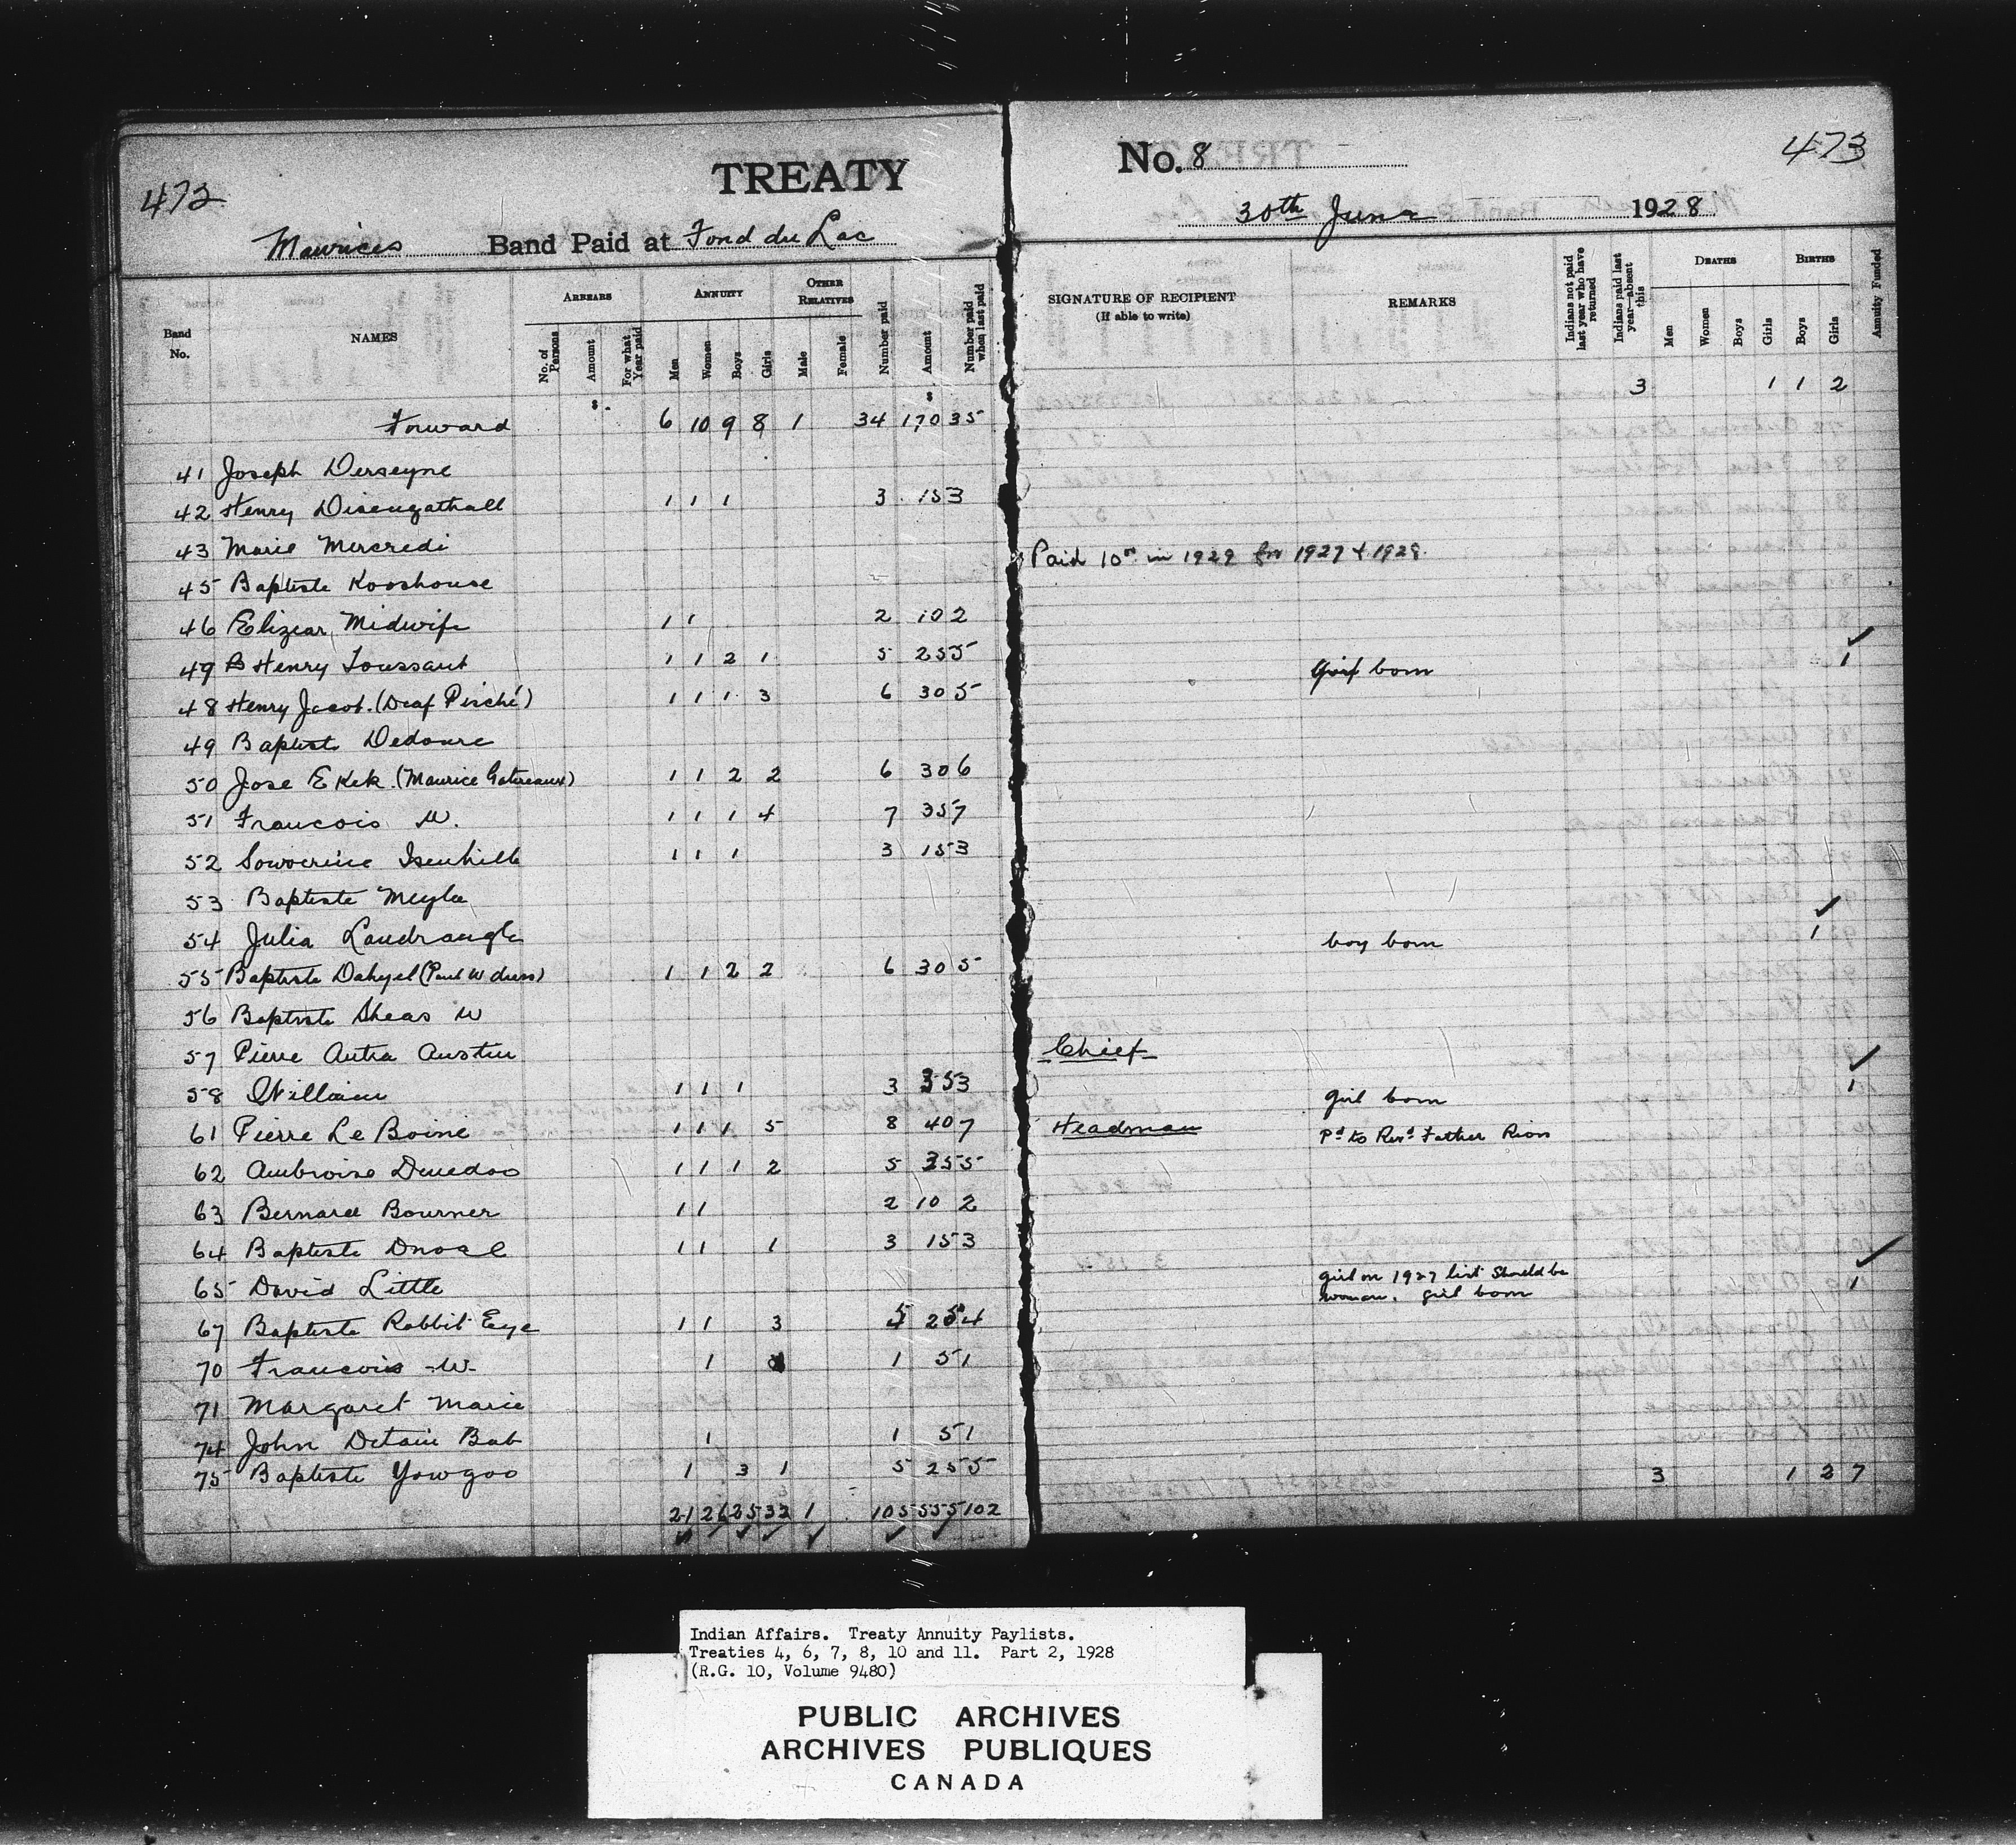 472
TREATY
No. 8
473
Maurices Band Paid at Fond du Lac
30th June 1928
Band No.
NAMES
ARREARS
No. of Persons
Amount
For what Year paid
ANNUITY
Men
Women
Boys
Girls
OTHER RELATIVES
Male
Female
Number paid
Amount
Number paid when last paid
SIGNATURE OF RECIPIENT
(If able to write)
REMARKS
Indians not paid last year who have returned
Indians paid last year—absent this
DEATHS
Men
Women
Boys
Girls
BIRTHS
Boys
Girls
Annuity Funded
Forward 6 10 9 8 1 34 170 35 3 1 1 2
41 Joseph Derseyne
42 Henry Disengathall 1 1 1 3 15 3
43 Marie Mercredi Paid 10 in 1929 for 1927 & 1928
45 Baptiste Kooshouse
46 Elizear Midwife 1 1 2 10 2
49 B Henry Toussaut 1 1 2 1 5 25 5 Girl born 1
48 Henry Jacob. (Deaf Pisché) 1 1 1 3 6 30 5
49 Baptiste Dedoure
50 Jose Ekek. (Maurice Gatureaux) 1 1 2 2 6 30 6
51 Francois W. 1 1 1 4 7 35 7
52 Sowoerine Isenhille 1 1 1 3 15 3
53 Baptiste Meyla
54 Julia Laudraugle boy born 1
55 Baptiste Dahyel (Paul W dress) 1 1 2 2 6 30 5
56 Baptiste Sheas W
57 Pierre Autra Austin Chief
58 William 1 1 1 3 35 3 girl born 1
61 Pierre Le Boine 1 1 1 5 8 40 7 Headman Pd to Revd Father Riou
62 Ambroise Dnedoo 1 1 1 2 5 35 5
63 Bernard Bourner 1 1 2 10 2
64 Baptiste Dnoal 1 1 1 3 15 3
65 David Little girl on 1927 list should be
woman. girl born 1
67 Baptiste Rabbit Eye 1 1 3 5 25 4
70 Francois W 1 1 5 1
71 Margaret Marie
74 John Detain Bab 1 1 5 1
75 Baptiste Yowgoo 1 3 1 5 25 5
21 26 25 32 1 105 555 102 3 1 2 7
Indian Affairs. Treaty Annuity Paylists.
Treaties 4, 6, 7, 8, 10 and 11. Part 2, 1928
(R.G. 10, Volume 9480)
PUBLIC ARCHIVES
ARCHIVES PUBLIQUES
CANADA